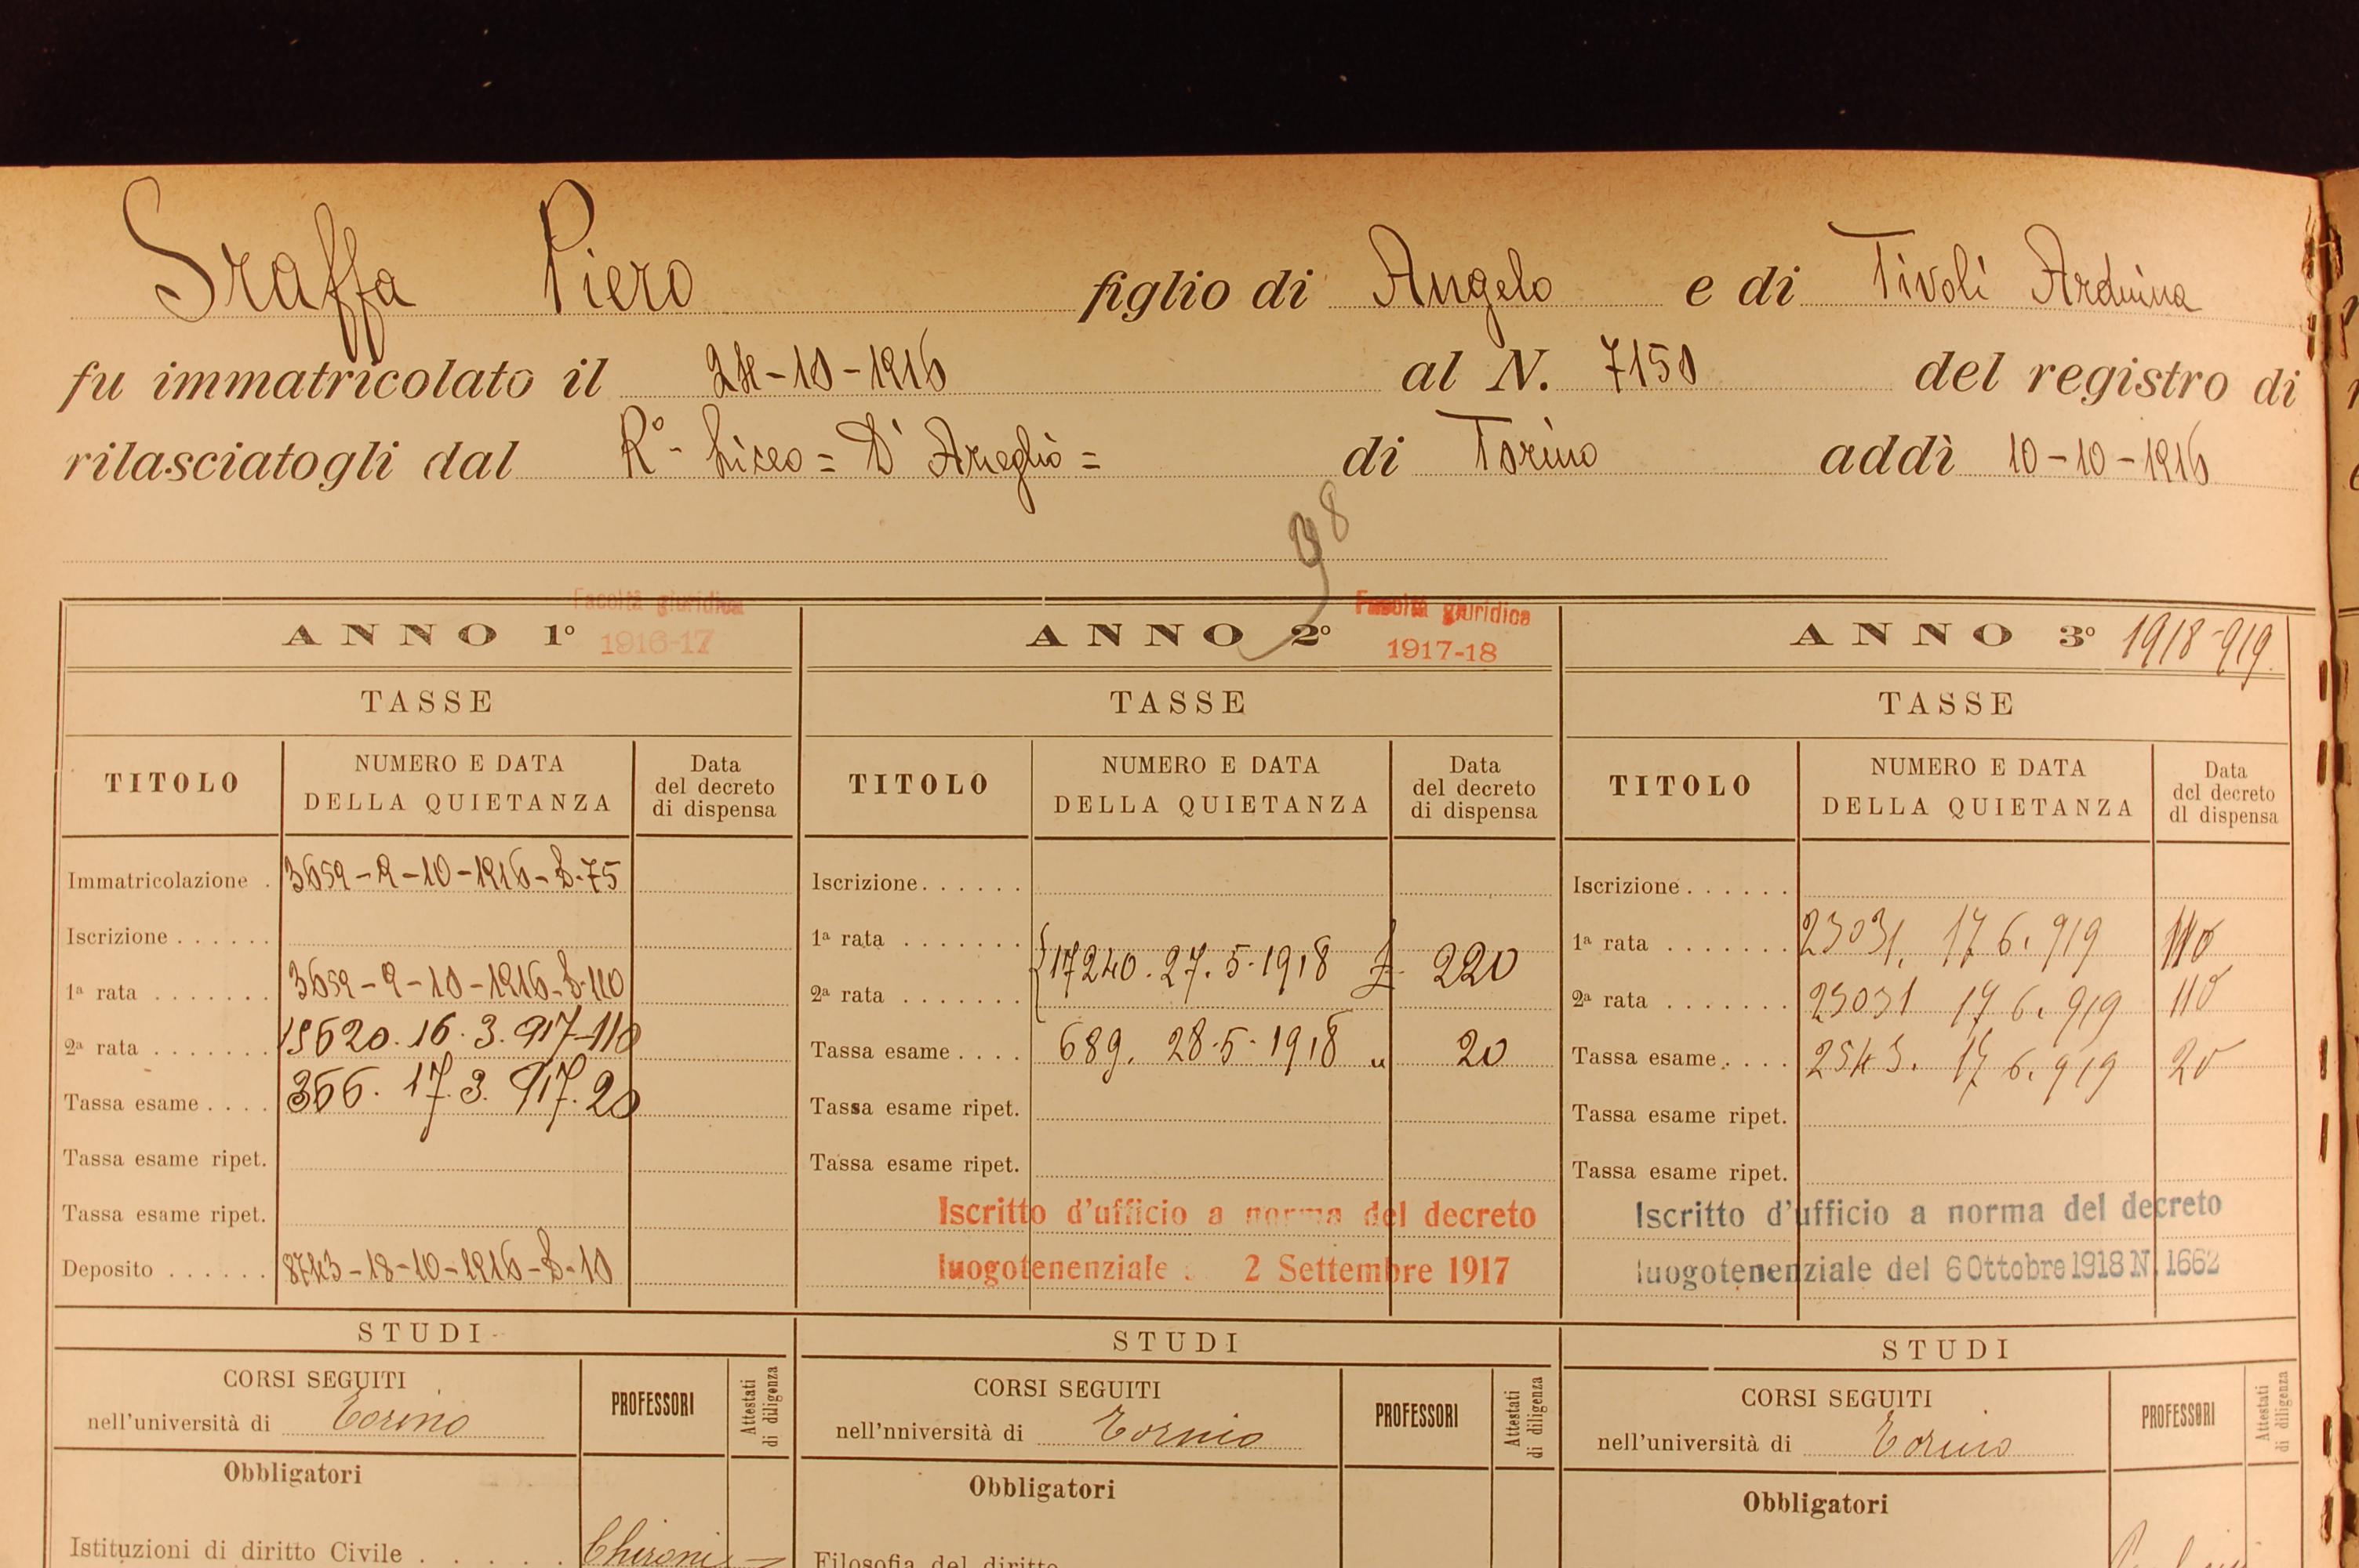 Sraffa Piero figlio di Angelo e di Tivoli Arduina
fu immatricolato il 24-10-1916 al N. 7150 del registro di
rilasciatogli dal R° Liceo = D'Azeglio = di Torino addì 10-10-1916
98
Facoltà giuridica
ANNO 1° 1916-17
TASSE
TITOLO
NUMERO E DATA
DELLA QUIETANZA
Data
del decreto
di dispensa
Immatricolazione . 3659-9-10-1916-£-75
Iscrizione . . . . . .
1ª rata . . . . . . . 3659-9-10-1916-£-110
2ª rata . . . . . . . 15620. 16. 3. 917-110
Tassa esame . . . . 366. 17. 3. 917. 20
Tassa esame ripet.
Tassa esame ripet.
Deposito . . . . . . 8743-18-10-1916-£-10
STUDI
CORSI SEGUITI
nell'università di Torino
PROFESSORI
Attestati
di diligenza
Obbligatori
Istituzioni di diritto Civile . . . . . Chironi
Facoltà giuridica
ANNO 2° 1917-18
TASSE
TITOLO
NUMERO E DATA
DELLA QUIETANZA
Data
del decreto
di dispensa
Iscrizione . . . . . .
1ª rata . . . . . . .
17240. 27. 5. 1918 £ 220
2ª rata . . . . . . .
Tassa esame . . . . 689. 28-5-1918 „ 20
Tassa esame ripet.
Tassa esame ripet.
Iscritto d'ufficio a norma del decreto
luogotenenziale 2 Settembre 1917
STUDI
CORSI SEGUITI
nell'nniversità di Torino
PROFESSORI
Attestati
di diligenza
Obbligatori
Filosofia del diritto
ANNO 3° 1918-919
TASSE
TITOLO
NUMERO E DATA
DELLA QUIETANZA
Data
del decreto
di dispensa
Iscrizione . . . . . .
1ª rata . . . . . . . 23031. 17 6. 919 110
2ª rata . . . . . . . 23031 17 6. 919 110
Tassa esame . . . . 2543. 17 6. 919 20
Tassa esame ripet.
Tassa esame ripet.
Iscritto d'ufficio a norma del decreto
luogotenenziale del 6 Ottobre 1918 N. 1662
STUDI
CORSI SEGUITI
nell'università di Torino
PROFESSORI
Attestati
di diligenza
Obbligatori